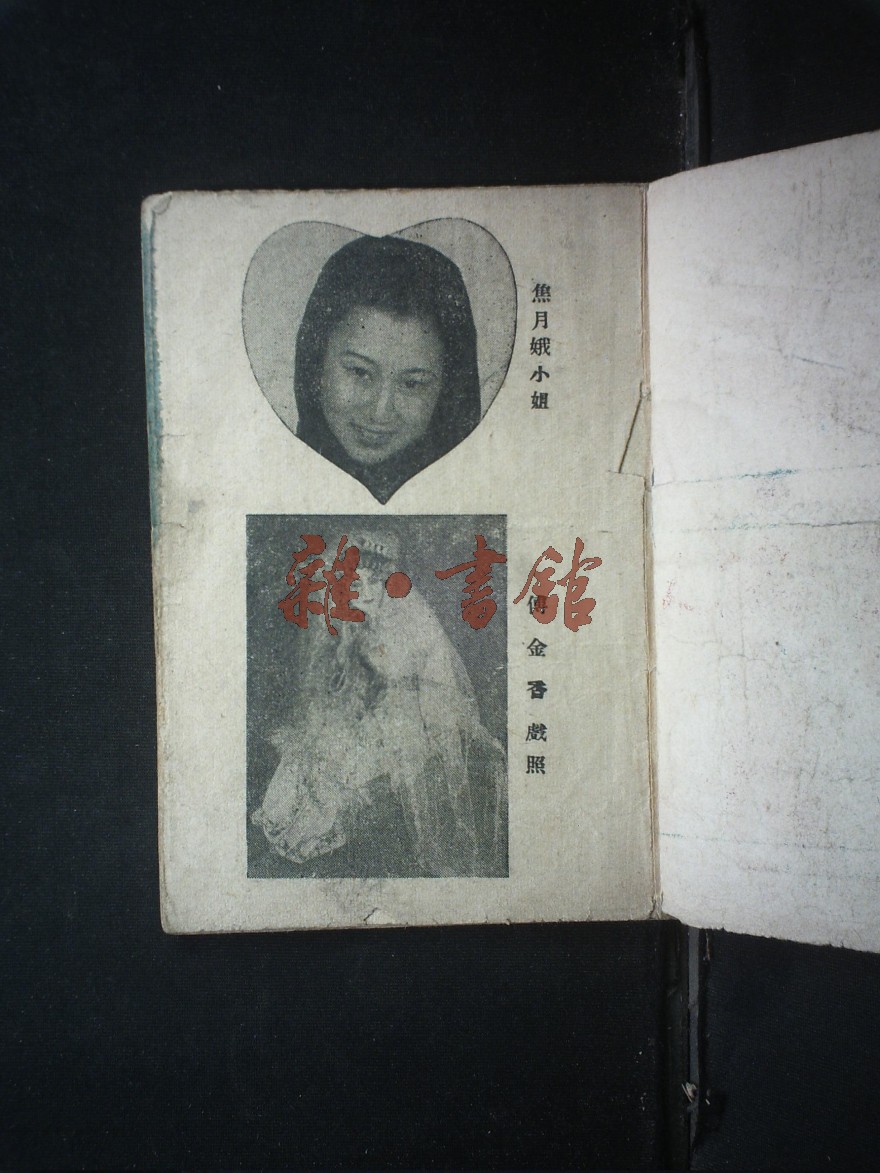 焦月娥小姐
雜·書館
傅金香戲照